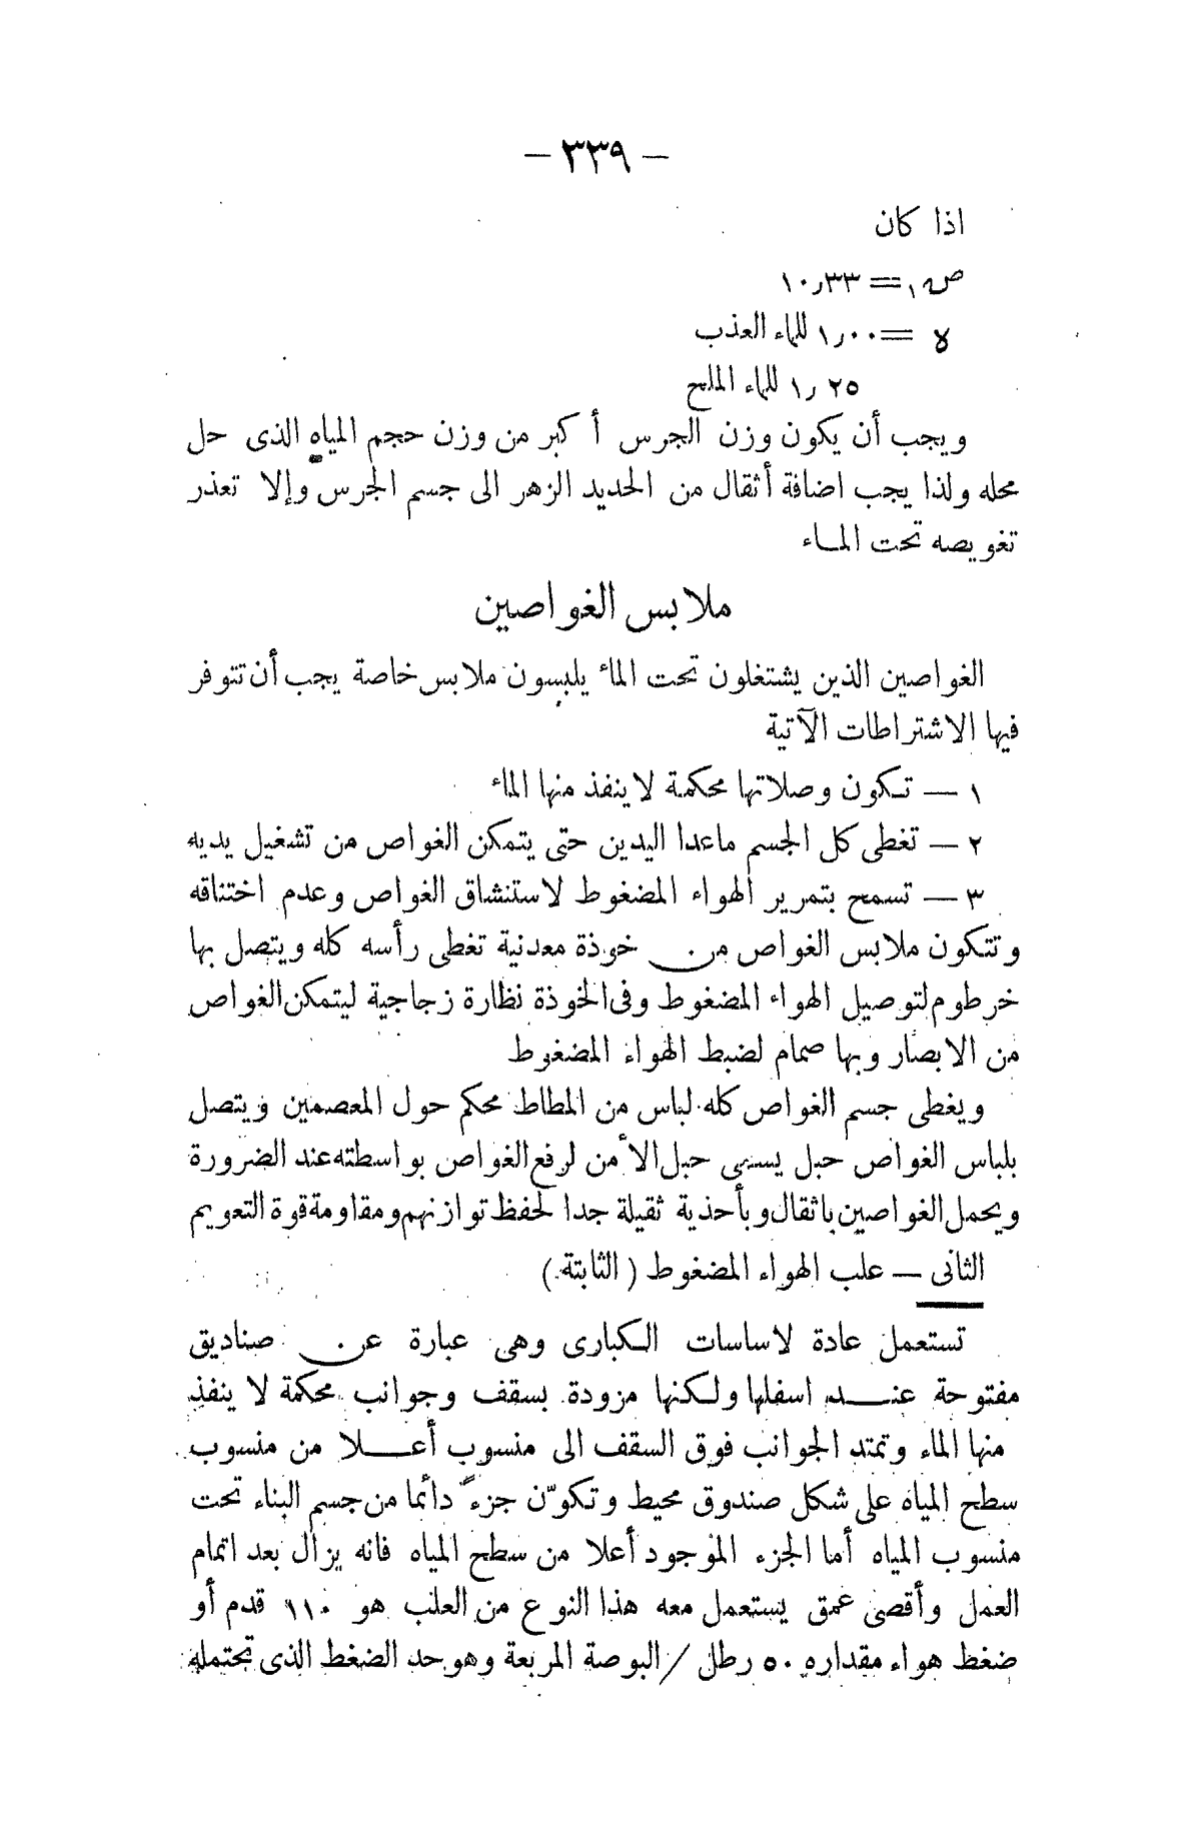 — ٣٣٩ —
اذا كان
ص١ = ١٠٫٣٣
لا = ١٫٠٠ للماء العذب
١٫٢٥ للماء الملح
ويجب أن يكون وزن الجرس أكبر من وزن حجم المياه الذى حل
محله ولذا يجب اضافة أثقال من الحديد الزهر الى جسم الجرس وإلا تعذر
تغويصه تحت الماء
ملابس الغواصين
الغواصين الذين يشتغلون تحت الماء يلبسون ملابس خاصة يجب أن تتوفر
فيها الاشتراطات الآتية
١ — تكون وصلاتها محكمة لا ينفذ منها الماء
٢ — تغطى كل الجسم ماعدا اليدين حتى يتمكن الغواص من تشغيل يديه
٣ — تسمح بتمرير الهواء المضغوط لاستنشاق الغواص وعدم اختناقه
وتتكون ملابس الغواص من خوذة معدنية تغطى رأسه كله ويتصل بها
خرطوم لتوصيل الهواء المضغوط وفى الخوذة نظارة زجاجية ليتمكن الغواص
من الابصار وبها صمام لضبط الهواء المضغوط
ويغطى جسم الغواص كله لباس من المطاط محكم حول المعصمين ويتصل
بلباس الغواص حبل يسمى حبل الأمن لرفع الغواص بواسطته عند الضرورة
ويحمل الغواصين باثقال وبأحذية ثقيلة جدا لحفظ توازنهم ومقاومة قوة التعويم
الثانى — علب الهواء المضغوط (الثابتة)
تستعمل عادة لاساسات الكبارى وهى عبارة عن صناديق
مفتوحة عند اسفلها ولكنها مزودة بسقف وجوانب محكمة لا ينفذ
منها الماء وتمتد الجوانب فوق السقف الى منسوب أعلا من منسوب
سطح المياه على شكل صندوق محيط وتكوّن جزءً دائما من جسم البناء تحت
منسوب المياه أما الجزء الموجود أعلا من سطح المياه فانه يزال بعد اتمام
العمل وأقصى عمق يستعمل معه هذا النوع من العلب هو ١١٠ قدم أو
ضغط هواء مقداره ٥٠ رطل / البوصة المربعة وهو حد الضغط الذى تحتمله